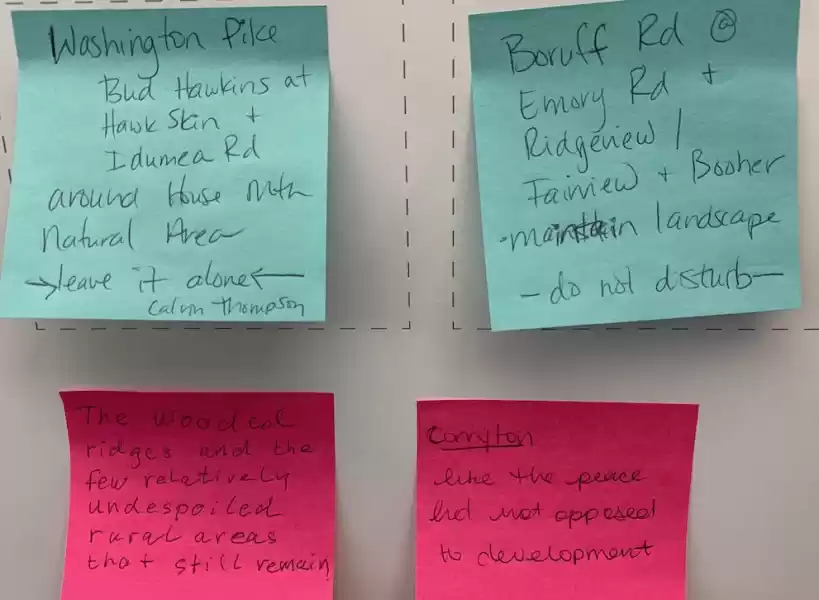 Washington Pike
Bud Hawkins at
Hawk Skin +
Idumea Rd
around House Mtn
Natural Area
→leave it alone←
Calvin Thompson
Boruff Rd @
Emory Rd +
Ridgeview /
Fairview + Booher
·maintain landscape
- do not disturb-
The wooded
ridges and the
few relatively
undespoiled
rural areas
that still remain
Corryton
like the peace
but not opposed
to development